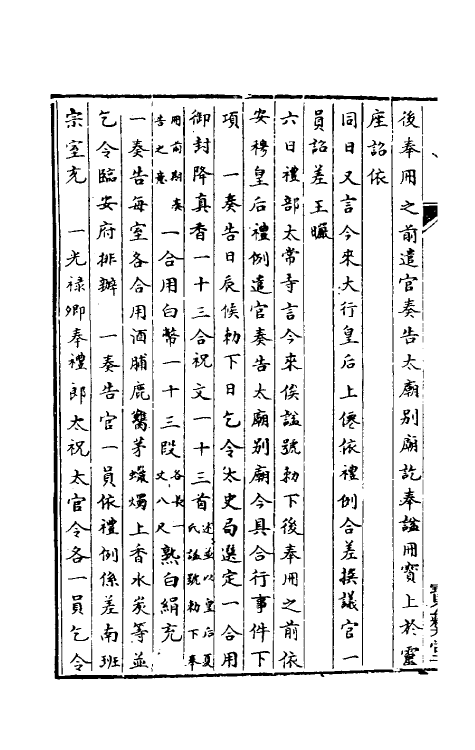 後奉冊之前遣官奏告太廟别廟訖奉謚冊寳上於靈
座詔依
同日又言今來大行皇后上僊依禮例合差撰議官一
員詔差王曮
六日禮部太常寺言今來俟謚號勑下後奉冊之前依
安穆皇后禮例遣官奏告太廟别廟今具合行事件下
項　一奏告日辰候勑下日乞令太史局選定一合用
御封降真香一十三合祝文一十三首述並以皇后夏氏謚號勑下奉
用前期奏告之意　一合用白幣一十三段各長一丈八尺熟白絹充
一奏告每室各合用酒脯鹿臡茅蠟燭上香水炭等並
乞令臨安府排辦　一奏告官一員依禮例係差南班
宗室充　一光禄卿奉禮郎太祝太官令各一員乞令